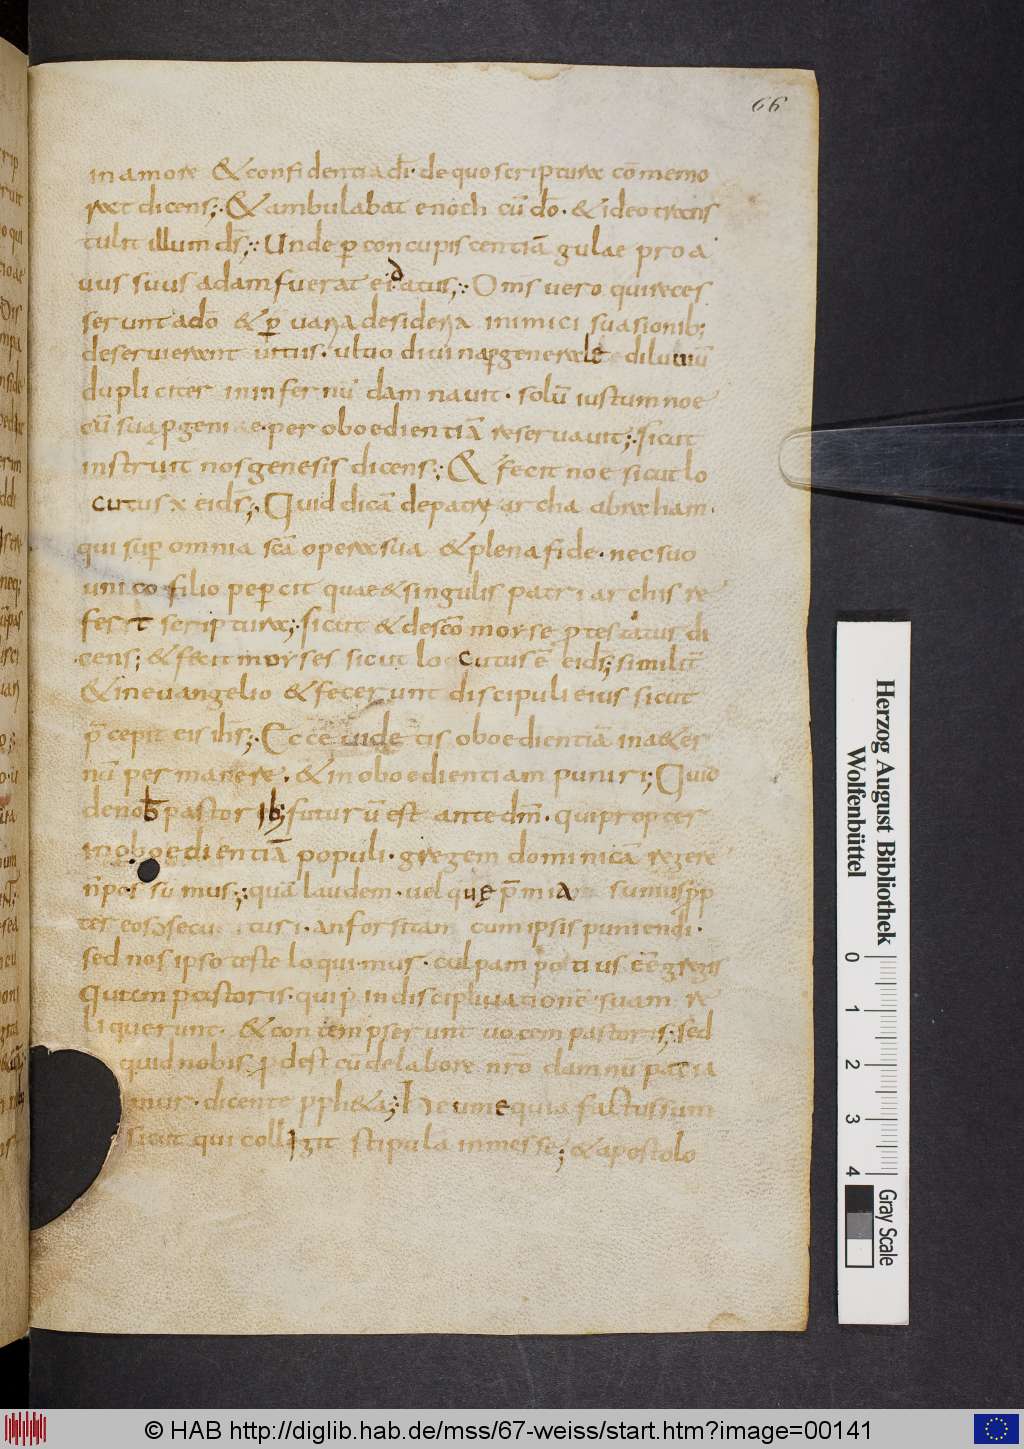 66
in amore & confidentia dī· de quo scripturae cōmemo
rat dicens;· & ambulabat enoch cū dō· & ideo trans
tulit illum ds̄;· Unde ꝑ concupiscentiā gulae proa
uus suus adam fuerat eidatus;· Oms uero qui reces
serunt ado & ꝑ uaria desideria inimici suasionib;
deseruierunt uitiis· ultio diuina ꝑ generale diluuiū
dupliciter in infernū damnauit· solū iustum noe
cū sua ꝓgenie· per oboedientiā reseruauit;· sicut
instruit nos genesis dicens;· & fecit noe sicut lo
cutus ei ds̄;· Quid dicā de patriarcha abraham·
qui suꝑ omnia scā opera sua & plena fide· nec suo
unico filio peꝑcit quae & singulis patriarchis re
fert scriptura;· sicut & de scō morse ꝓtestatus di
cens; & fecit morses sicut locutus ē ei ds̄; similit̄
& in euangelio & fecerunt discipuli eius sicut
p̄cepit eis ihs̄;· Ecce uidetis oboedientiā in aeter
nū permanere· & inoboedientiam puniri; Quid
de nob̄ pastorib; futurū est ante dm̄· qui propter
inoboedientiā populi· gregem dominicā regere
sumus;· quā laudem· uel quę p̄mia sumus ꝓp
ter eos secuturi· an forsitan cum ipsis puniendi·
sed nos ipso teste loquimur· culpam potius eē gregis
quam pastoris· qui ꝑ indisciplinationē suam re
liquerunt· & contempserunt uocem pastoris; sed
quid nobis ꝓdest cū de labore nrō damnū patia
mur· dicente ꝓph&a; quia factus sum
sicut qui colligit stipula in messe; & apostolo
Herzog August Bibliothek
Wolfenbüttel
0 1 2 3 4
Gray Scale
© HAB http://diglib.hab.de/mss/67-weiss/start.htm?image=00141